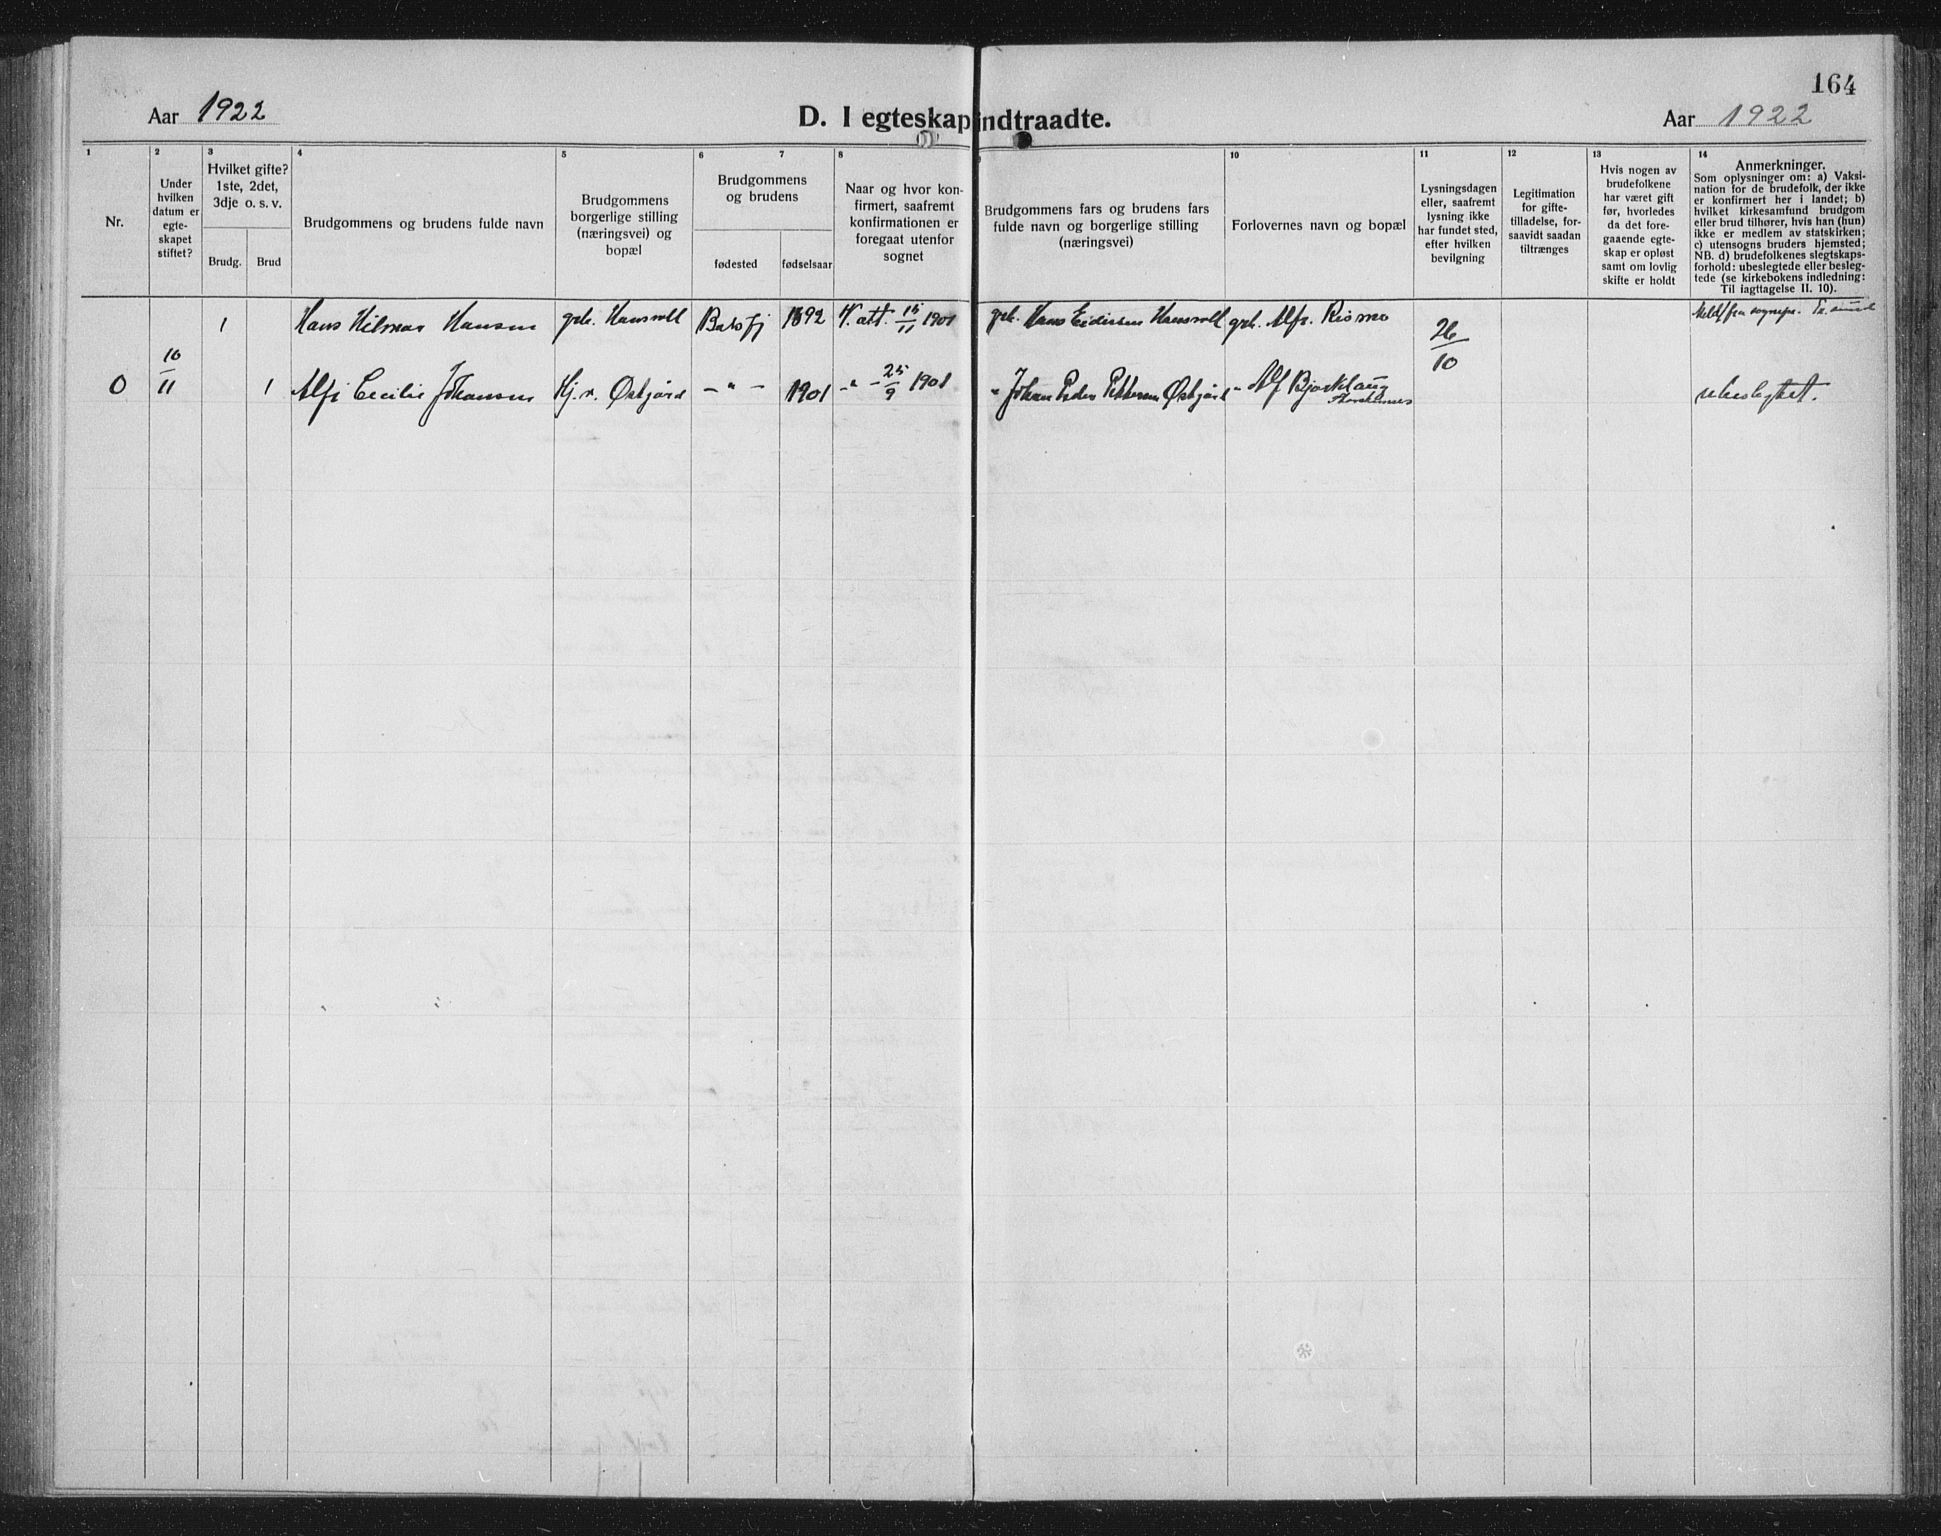 164
Aar 1922
D. I egteskap indtraadte.
Aar 1922
1
2
3
4
5
6
7
8
9
10
11
12
13
14
Nr.
Under
hvilken
datum er
egte-
skapet
stiftet?
Hvilket gifte?
1ste, 2det,
3dje o. s. v.
Brudg.
Brud
Brudgommens og brudens fulde navn
Brudgommens
borgerlige stilling
(næringsvei) og
bopæl
Brudgommens
og brudens
fødested
fødselsaar
Naar og hvor kon-
firmert, saafremt
konfirmationen er
foregaat utenfor
sognet
Brudgommens fars og brudens fars
fulde navn og borgerlige stilling
(næringsvei)
Forlovernes navn og bopæl
Lysningsdagen
eller, saafremt
lysning ikke
har fundet sted,
efter hvilken
bevilgning
Legitimation
for gifte-
tilladelse, for-
saavidt saadan
tiltrænges
Hvis nogen av
brudefolkene
har været gift
før, hvorledes
da det fore-
gaaende egte-
skap er opløst
samt om lovlig
skifte er holdt
Anmerkninger.
Som oplysninger om: a) Vaksi-
nation for de brudefolk, der ikke
er konfirmert her i landet; b)
hvilket kirkesamfund brudgom
eller brud tilhører, hvis han (hun)
ikke er medlem av statskirken;
c) utensogns bruders hjemsted;
NB. d) brudefolkenes slegtskaps-
forhold: ubeslegtede eller besleg-
tede (se kirkebokens indledning:
Til iagttagelse II. 10).
1 Hans Hilmar Hansen gbr. Hansvoll Balsfj 1892 K. att. 15/11 1907 gbr. Hans Hansvoll gbr. Alfr. Rismo 26/10
0 10/11 1 Alfi Cecilie Johansen Hj. v. Østgård - " - 1901 - " - 25/9 Johan Peder Pettersen Østgård " Alf Bjørklaug ubeslegtet.